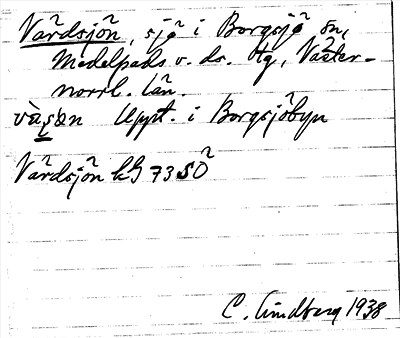 Vårdsjön, sjö i Borgsjö sn,
Medelpads v. ds. htg, Väster-
norrl. län.
Uppt. i Borgsjöbyn
Vårdsjön kG 73 SÖ
C. Lindberg 1938